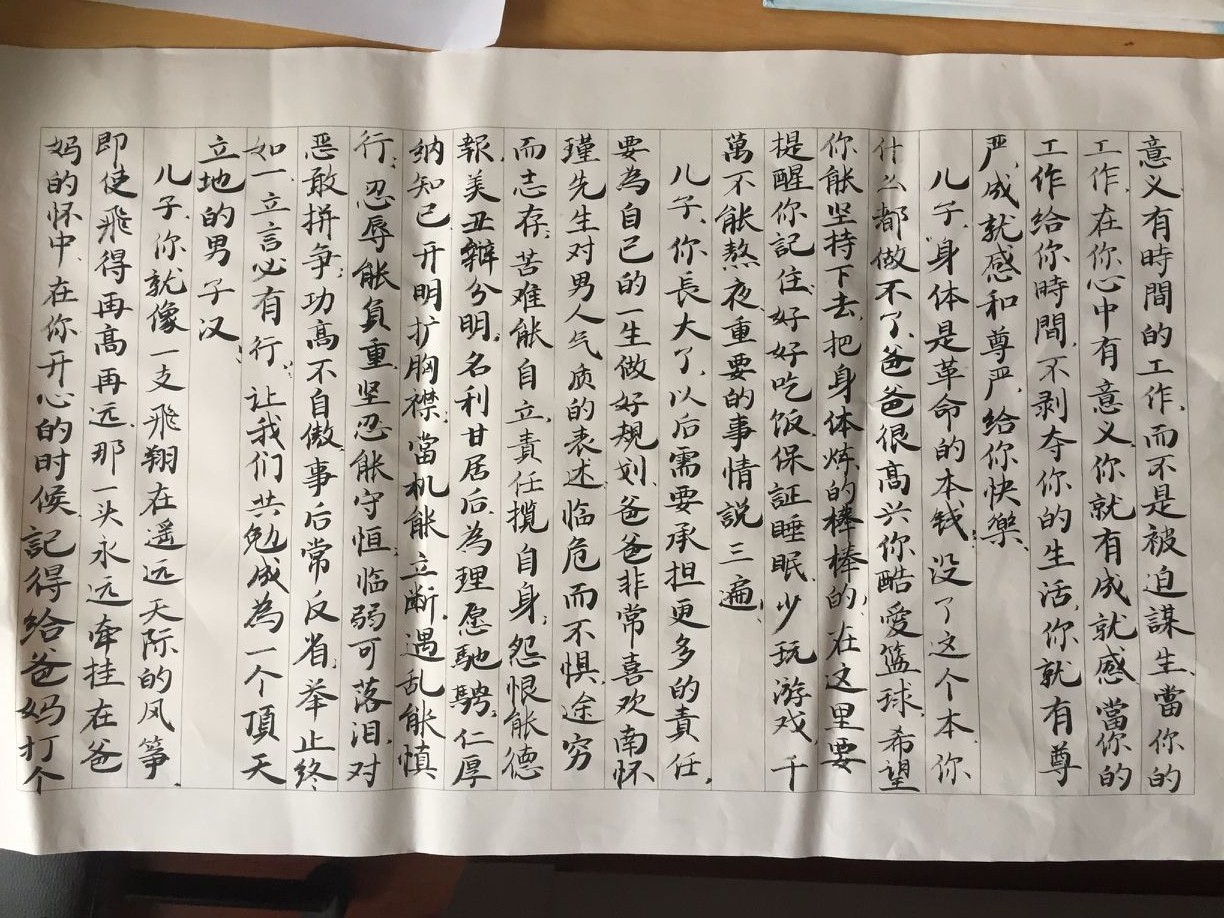 意义有時間的工作、而不是被迫謀生當你的
工作、在你心中有意义、你就有成就感、當你的
工作给你時間、不剥夺你的生活、你就有尊
严、成就感和尊严、给你快樂、
儿子、身体是革命的本钱、没了这个本、你
什么都做不了、爸爸很高兴你酷爱篮球、希望
你能坚持下去、把身体炼的棒棒的、在这里要
提醒你記住、好好吃饭、保証睡眠、少玩游戏、千
萬不能熬夜、重要的事情説三遍、
儿子、你長大了、以后需要承担更多的責任、
要為自己的一生做好规划、爸爸非常喜欢南怀
瑾先生对男人气质的表述、临危而不惧、途穷
而志存；苦难能自立、責任揽自身；怨恨能德
報、美丑辩分明；名利甘居后、為理愿馳騁；仁厚
纳知己、开明扩胸襟；當机能立断、遇乱能慎
行；忍辱能負重、坚忍能守恒；临弱可落泪、对
恶敢拼争；功高不自傲、事后常反省；举止终
如一、立言必有行、让我们共勉成為一个頂天
立地的男子汉、
儿子、你就像一支飛翔在遥远天际的风筝、
即使飛得再高再远、那一头永远牵挂在爸
妈的怀中、在你开心的时候、記得给爸妈打个